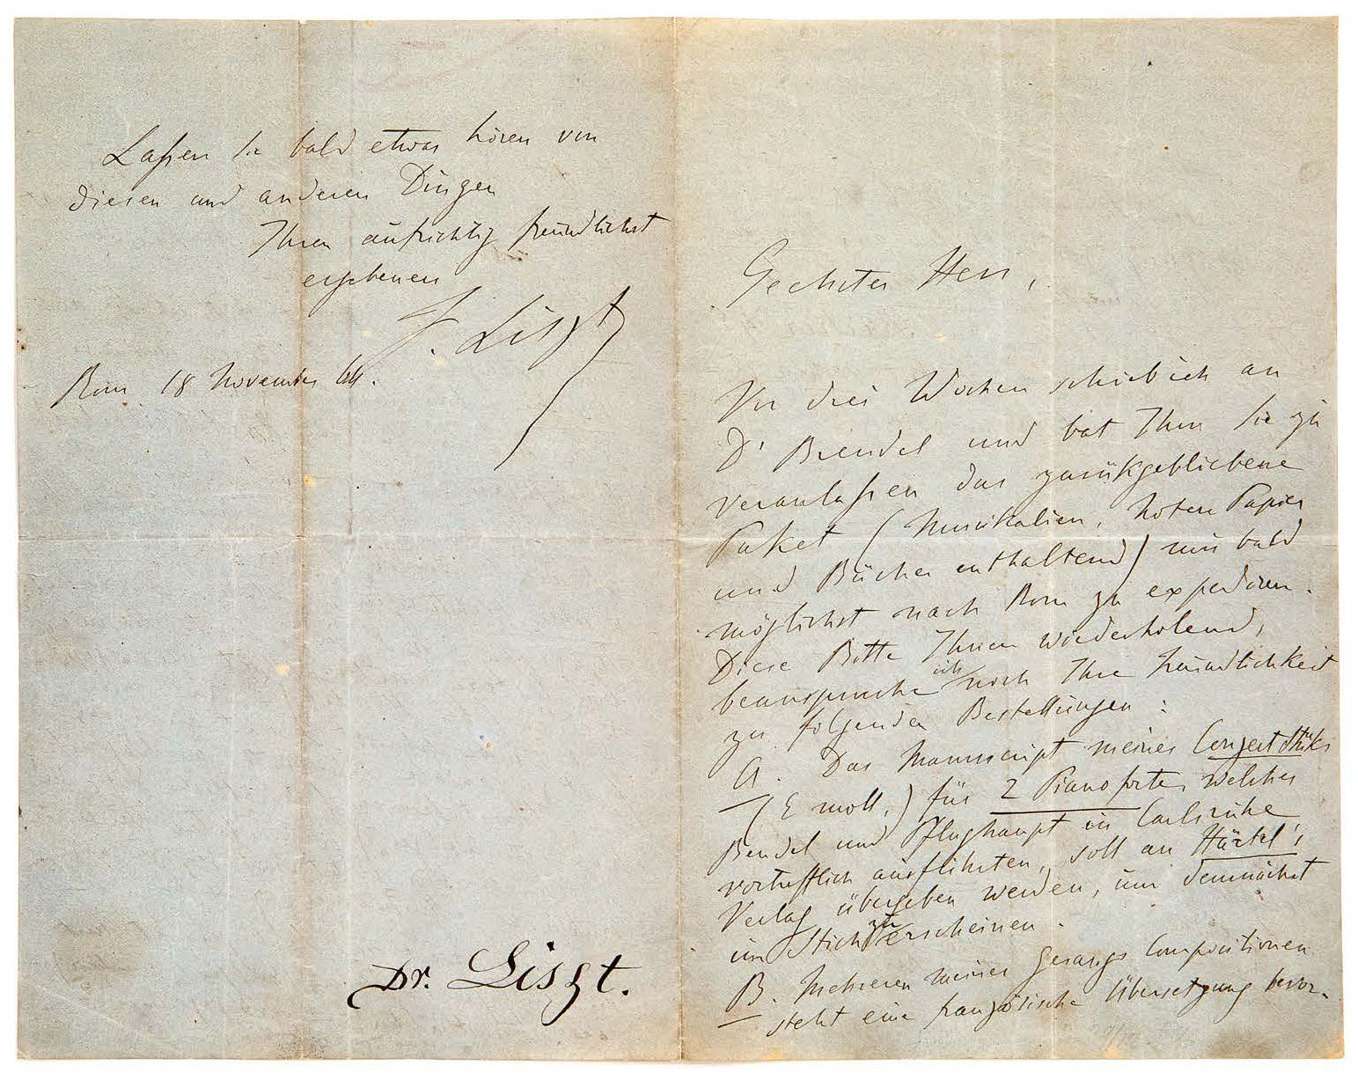 Laßen Sie bald etwas hören von
diesen und anderen Dingen
Ihren aufrichtig freundlichst
ergebenen
F. Liszt
Rom 18 November 64.
Dr. Liszt.
Geehrter Herr,
Vor drei Wochen schrieb ich an
Dr Brendel und bat Ihn Sie zu
veranlaßen das zurükgebliebene
Paket (Musikalien, Noten Papier
und Bücher enthaltend) mir bald
möglichst nach Rom zu expediren.
Diese Bitte Ihnen wiederholend,
beanspruche ich noch Ihre Freundlichkeit
zu folgenden Bestellungen:
A. Das Manuscript meines Conzertstüks
(E moll,) für 2 Pianoforte, welches
Bendel und Pflughaupt in Carlsruhe
vortrefflich ausführten, soll an Härtel's
Verlag übergeben werden, um demnächst
im Stich zu erscheinen.
B. Mehreren meiner Gesangs Compositionen
steht eine französische Übersetzung bevor.